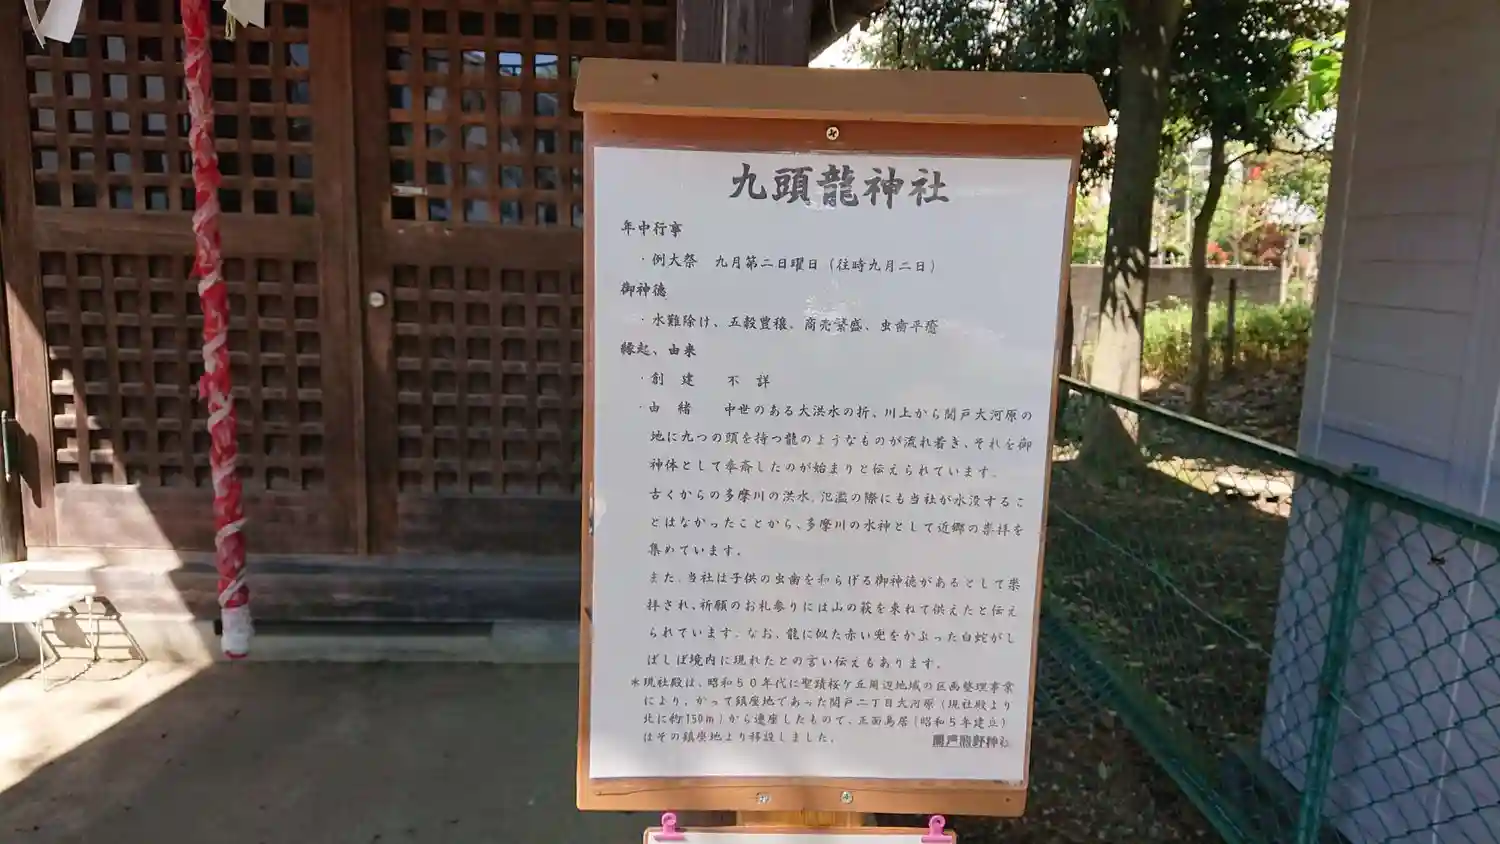 九頭龍神社
年中行事
・例大祭　九月第二日曜日（往時九月二日）
御神徳
・水難除け、五穀豊穣、商売繁盛、虫歯平癒
縁起、由来
・創　建　　不　詳
・由　緒　　中世のある大洪水の折、川上から関戸大河原の
地に九つの頭を持つ龍のようなものが流れ着き、それを御
神体として奉斎したのが始まりと伝えられています。
古くからの多摩川の洪水、氾濫の際にも当社が水没するこ
とはなかったことから、多摩川の水神として近郷の崇拝を
集めています。
また、当社は子供の虫歯を和らげる御神徳があるとして崇
拝され、祈願のお礼参りには山の萩を束ねて供えたと伝え
られています。なお、龍に似た赤い兜をかぶった白蛇がし
ばしば境内に現れたとの言い伝えもあります。
＊現社殿は、昭和５０年代に聖蹟桜ケ丘周辺地域の区画整理事業
により、かつて鎮座地であった関戸二丁目大河原（現社殿より
北に約150ｍ）から遷座したもので、正面鳥居（昭和５年建立）
はその鎮座地より移設しました。
関戸熊野神社